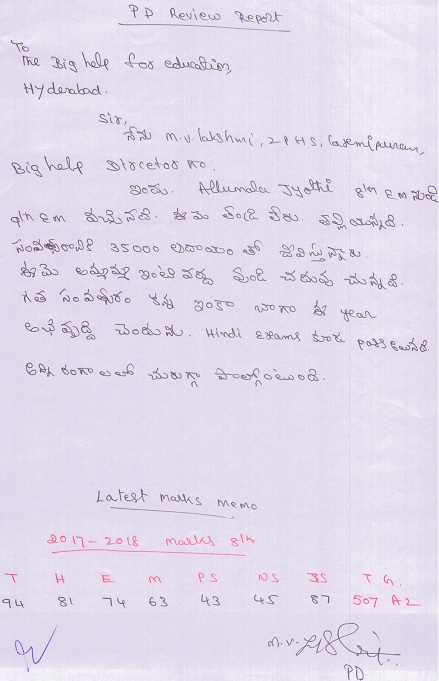 PD Review Report
To
The Big help for education,
Hyderabad.
Sir,
నేను M.V. Lakshmi, Z P H S, Laxmipuram,
Big help Dircetor
ఇందు. Allumala Jyothi 8th EM నుండి
9th EM వచ్చినది. ఈమె తండ్రి లేరు. తల్లి యున్నది.
సంవత్సరానికి 35000 ఆదాయం తో జీవిస్తున్నారు.
ఈమె అమ్మమ్మ ఇంటి వద్ద వుండి చదువు చున్నది.
గత సంవత్సరం కన్న ఇంకా బాగా ఈ year
అభివృద్ధి చెందును. Hindi Exams కూడా pass అయినది.
అన్ని రంగాలలో చురుగ్గా పాల్గొంటుంది.
Latest marks memo
2017-2018 marks 8th
T H E M PS NS SS T G.
94 81 74 63 43 45 87 507 A2
M.V.
PD